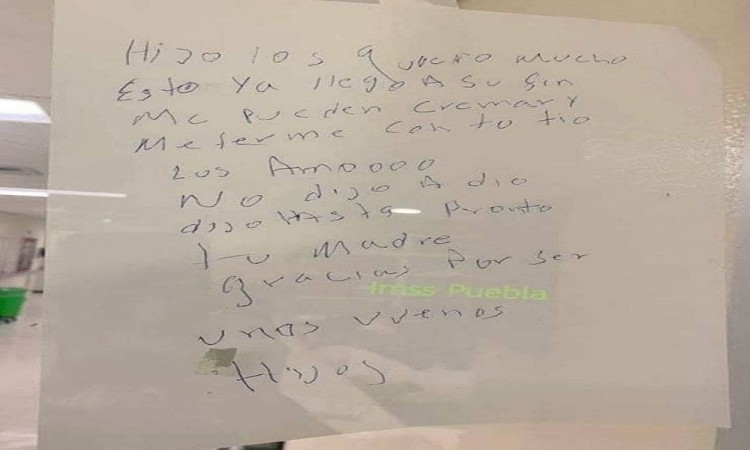 Hijo los quiero mucho
Esto ya llego A su fin
Me pueden cremar y
Meterme con tu tio
Los Amoooo
No dijo A dio
dijo HAsta Pronto
tu Madre
gracias Por ser
Imss Puebla
unos vuenos
Hijos